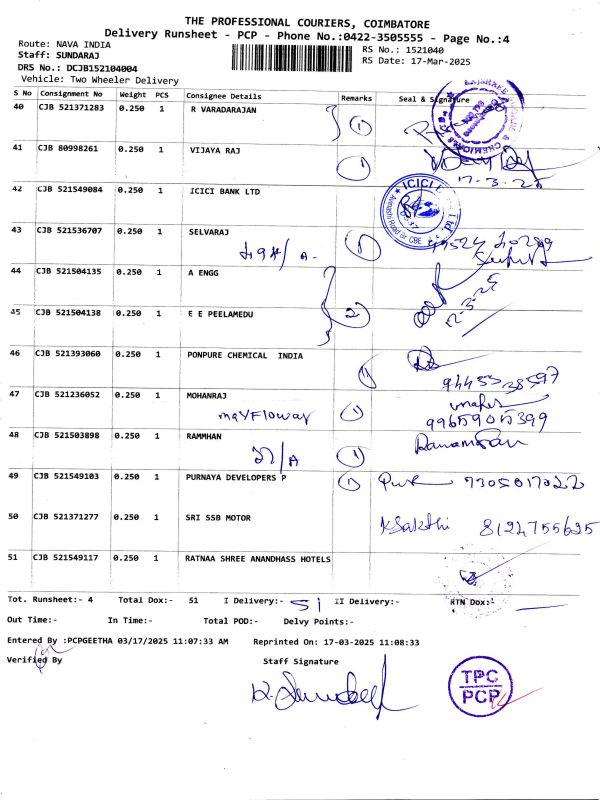 THE PROFESSIONAL COURIERS, COIMBATORE
Delivery Runsheet - PCP - Phone No.:0422-3505555 - Page No.:4
Route: NAVA INDIA
RS No.: 1521040
Staff: SUNDARAJ
RS Date: 17-Mar-2025
DRS No.: DCJB152104004
Vehicle: Two Wheeler Delivery
S No Consignment No Weight PCS Consignee Details Remarks Seal & Signature
40 CJB 521371283 0.250 1 R VARADARAJAN 1
41 CJB 80998261 0.250 1 VIJAYA RAJ 1
17-3-25
42 CJB 521549084 0.250 1 ICICI BANK LTD
ICICI
43 CJB 521536707 0.250 1 SELVARAJ 1
44 CJB 521504135 0.250 1 A ENGG
45 CJB 521504138 0.250 1 E E PEELAMEDU 2
46 CJB 521393060 0.250 1 PONPURE CHEMICAL INDIA 1
47 CJB 521236052 0.250 1 MOHANRAJ
mayFlowar 1 9965905399
48 CJB 521503898 0.250 1 RAMMHAN 1
49 CJB 521549103 0.250 1 PURNAYA DEVELOPERS P 1 7305817022
50 CJB 521371277 0.250 1 SRI SSB MOTOR K Sakthi 8124755625
51 CJB 521549117 0.250 1 RATNAA SHREE ANANDHASS HOTELS
Tot. Runsheet:- 4 Total Dox:- 51 I Delivery:- 51 II Delivery:- RTN Dox:-
Out Time:- In Time:- Total POD:- Delvy Points:-
Entered By :PCPGEETHA 03/17/2025 11:07:33 AM Reprinted On: 17-03-2025 11:08:33
Verified By Staff Signature
TPC
PCP